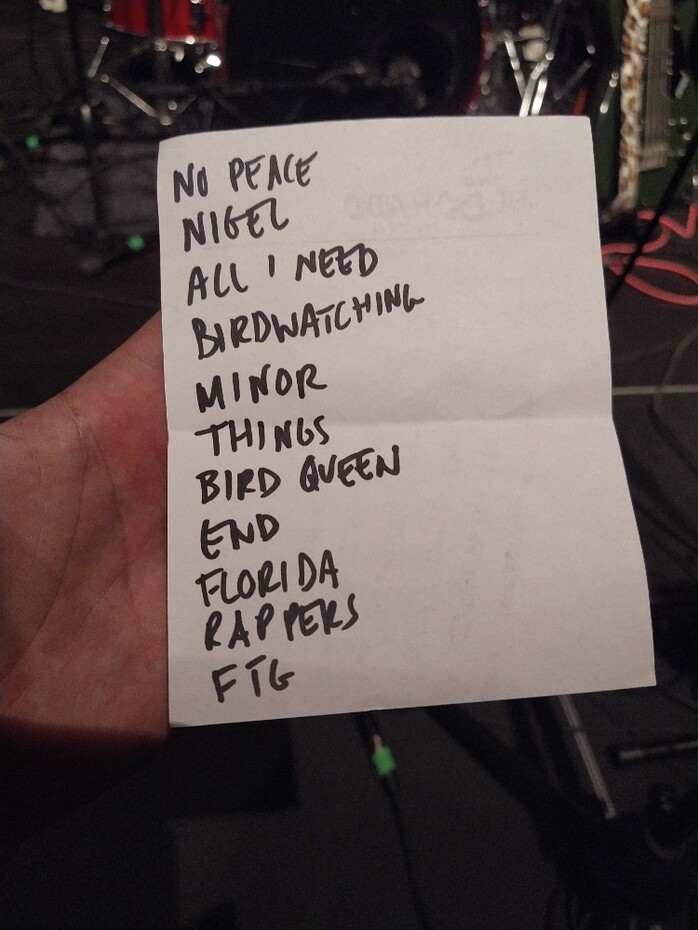 NO PEACE
NIGEL
ALL I NEED
BIRDWATCHING
MINOR
THINGS
BIRD QUEEN
END
FLORIDA
RAPPERS
FTG